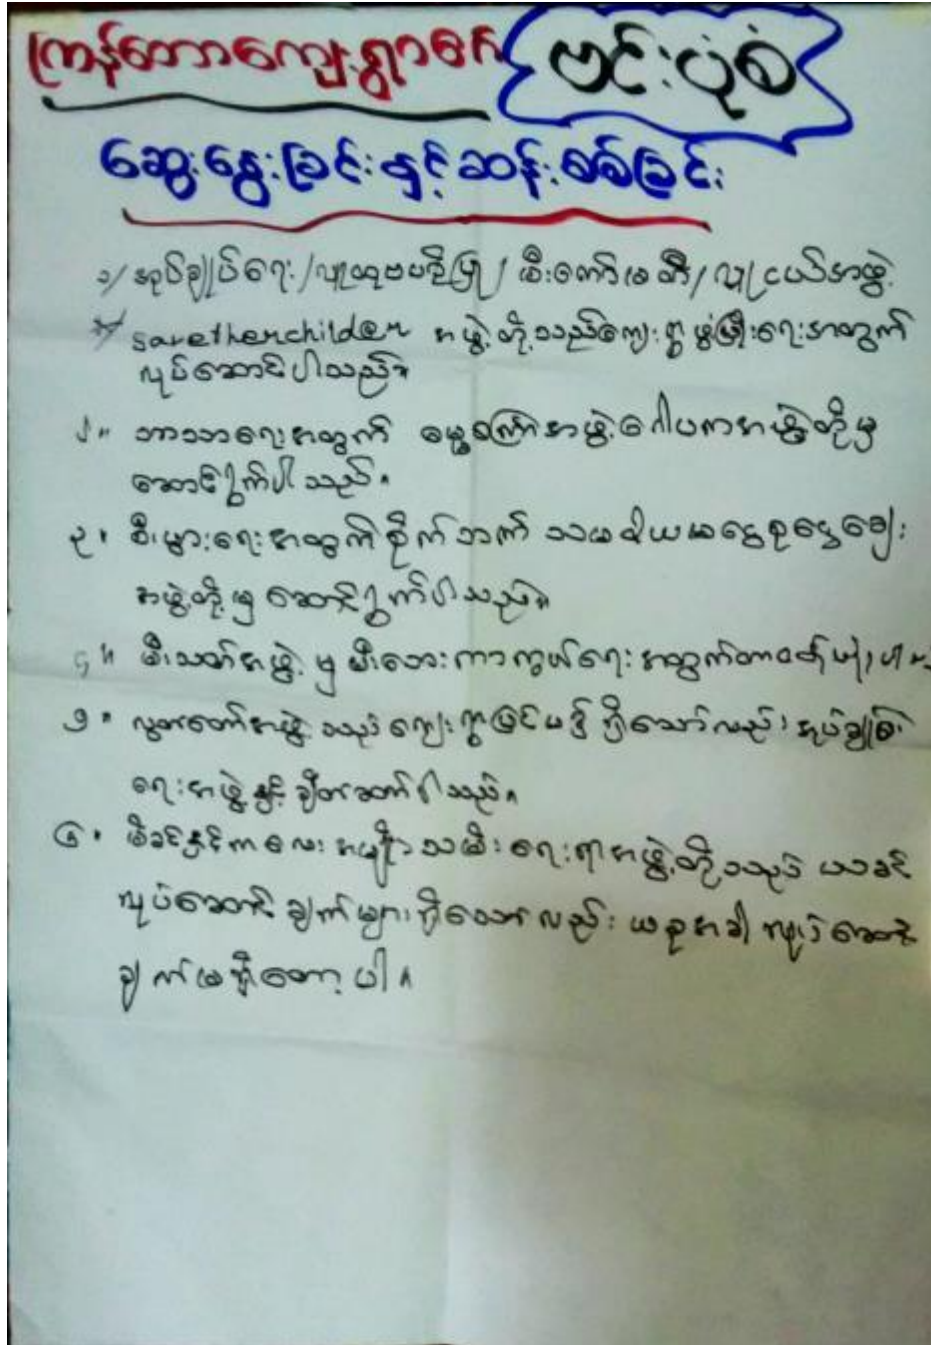 ကြန်တောကျေးရွာ၏ ဗင်းပုံစံ
ဆွေးနွေးခြင်းနှင့်ဆန်းစစ်ခြင်း
၁/ အုပ်ချုပ်ရေး/လူထုဗဟိုပြု/မီးကော်မတီ/လူငယ်အဖွဲ့
savethenchilden အဖွဲ့တို့သည်ကျေးရွာဖွံ့ဖြိုးရေးအတွက်
လုပ်ဆောင်ပါသည်။
၂။ ဘာသာရေးအတွက် ဓမ္မစကြာအဖွဲ့ဂေါပကအဖွဲ့တို့မှ
ဆောင်ရွက်ပါသည်။
၃။ စီးပွားရေးအတွက်စိုက်ဘက်သမဝါယမငွေစုငွေချေး
အဖွဲ့တို့မှဆောင်ရွက်ပါသည်။
၄။ မီးသတ်အဖွဲ့မှမီးဘေးကာကွယ်ရေးအတွက်တာဝန်ယူ
၅။ လွှတ်တော်အဖွဲ့သည်ကျေးရွာပြင်ပ၌ရှိသော်လည်းအုပ်ချုပ်
ရေးအဖွဲ့နှင့်ချိတ်ဆက်ပါသည်။
၆။ မိခင်နှင့်ကလေးအမျိုးသမီးရေးရာအဖွဲ့တို့သည်ယခင်
လုပ်ဆောင်ချက်များရှိသော်လည်းယခုအခါလုပ်ဆောင်
ချက်မရှိတော့ပါ။